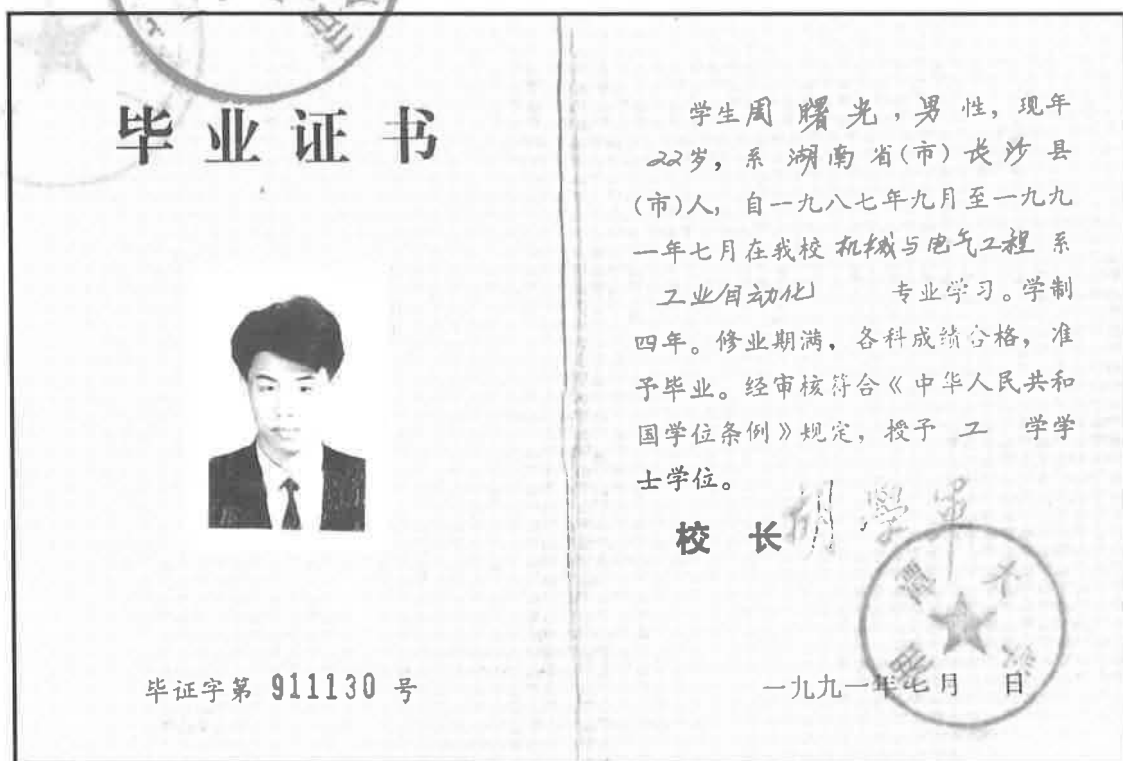 毕业证书
毕证字第 911130 号
学生周曙光，男性，现年
22岁，系湖南省(市)长沙县
(市)人，自一九八七年九月至一九九
一年七月在我校机械与电气工程系
工业自动化 专业学习。学制
四年。修业期满，各科成绩合格，准
予毕业。经审核符合《中华人民共和
国学位条例》规定，授予 工 学学
士学位。
校 长
湘潭大学
一九九一年七月 日